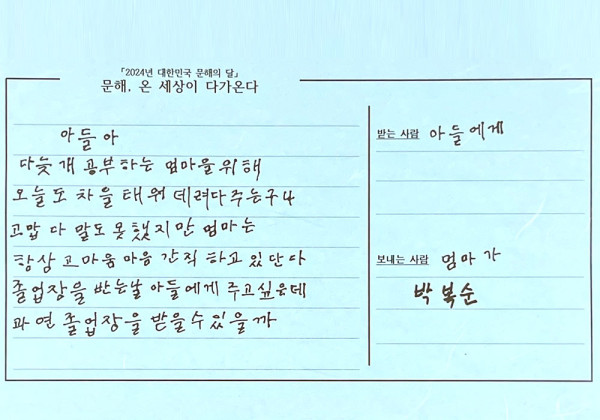 「2024년 대한민국 문해의 달」
문해, 온 세상이 다가온다
아들아
다늦개 공부하는 엄마을위해
오늘도 차을 태워 데려다주는구나
고맙다 말도 못했지만 엄마는
항상 고마움 마음 간직 하고 있단다
졸업장을 반는날 아들에게 주고싶은데
과연 졸업장을 받을수있을까
받는 사람 아들에게
보내는 사람 엄마가
박복순